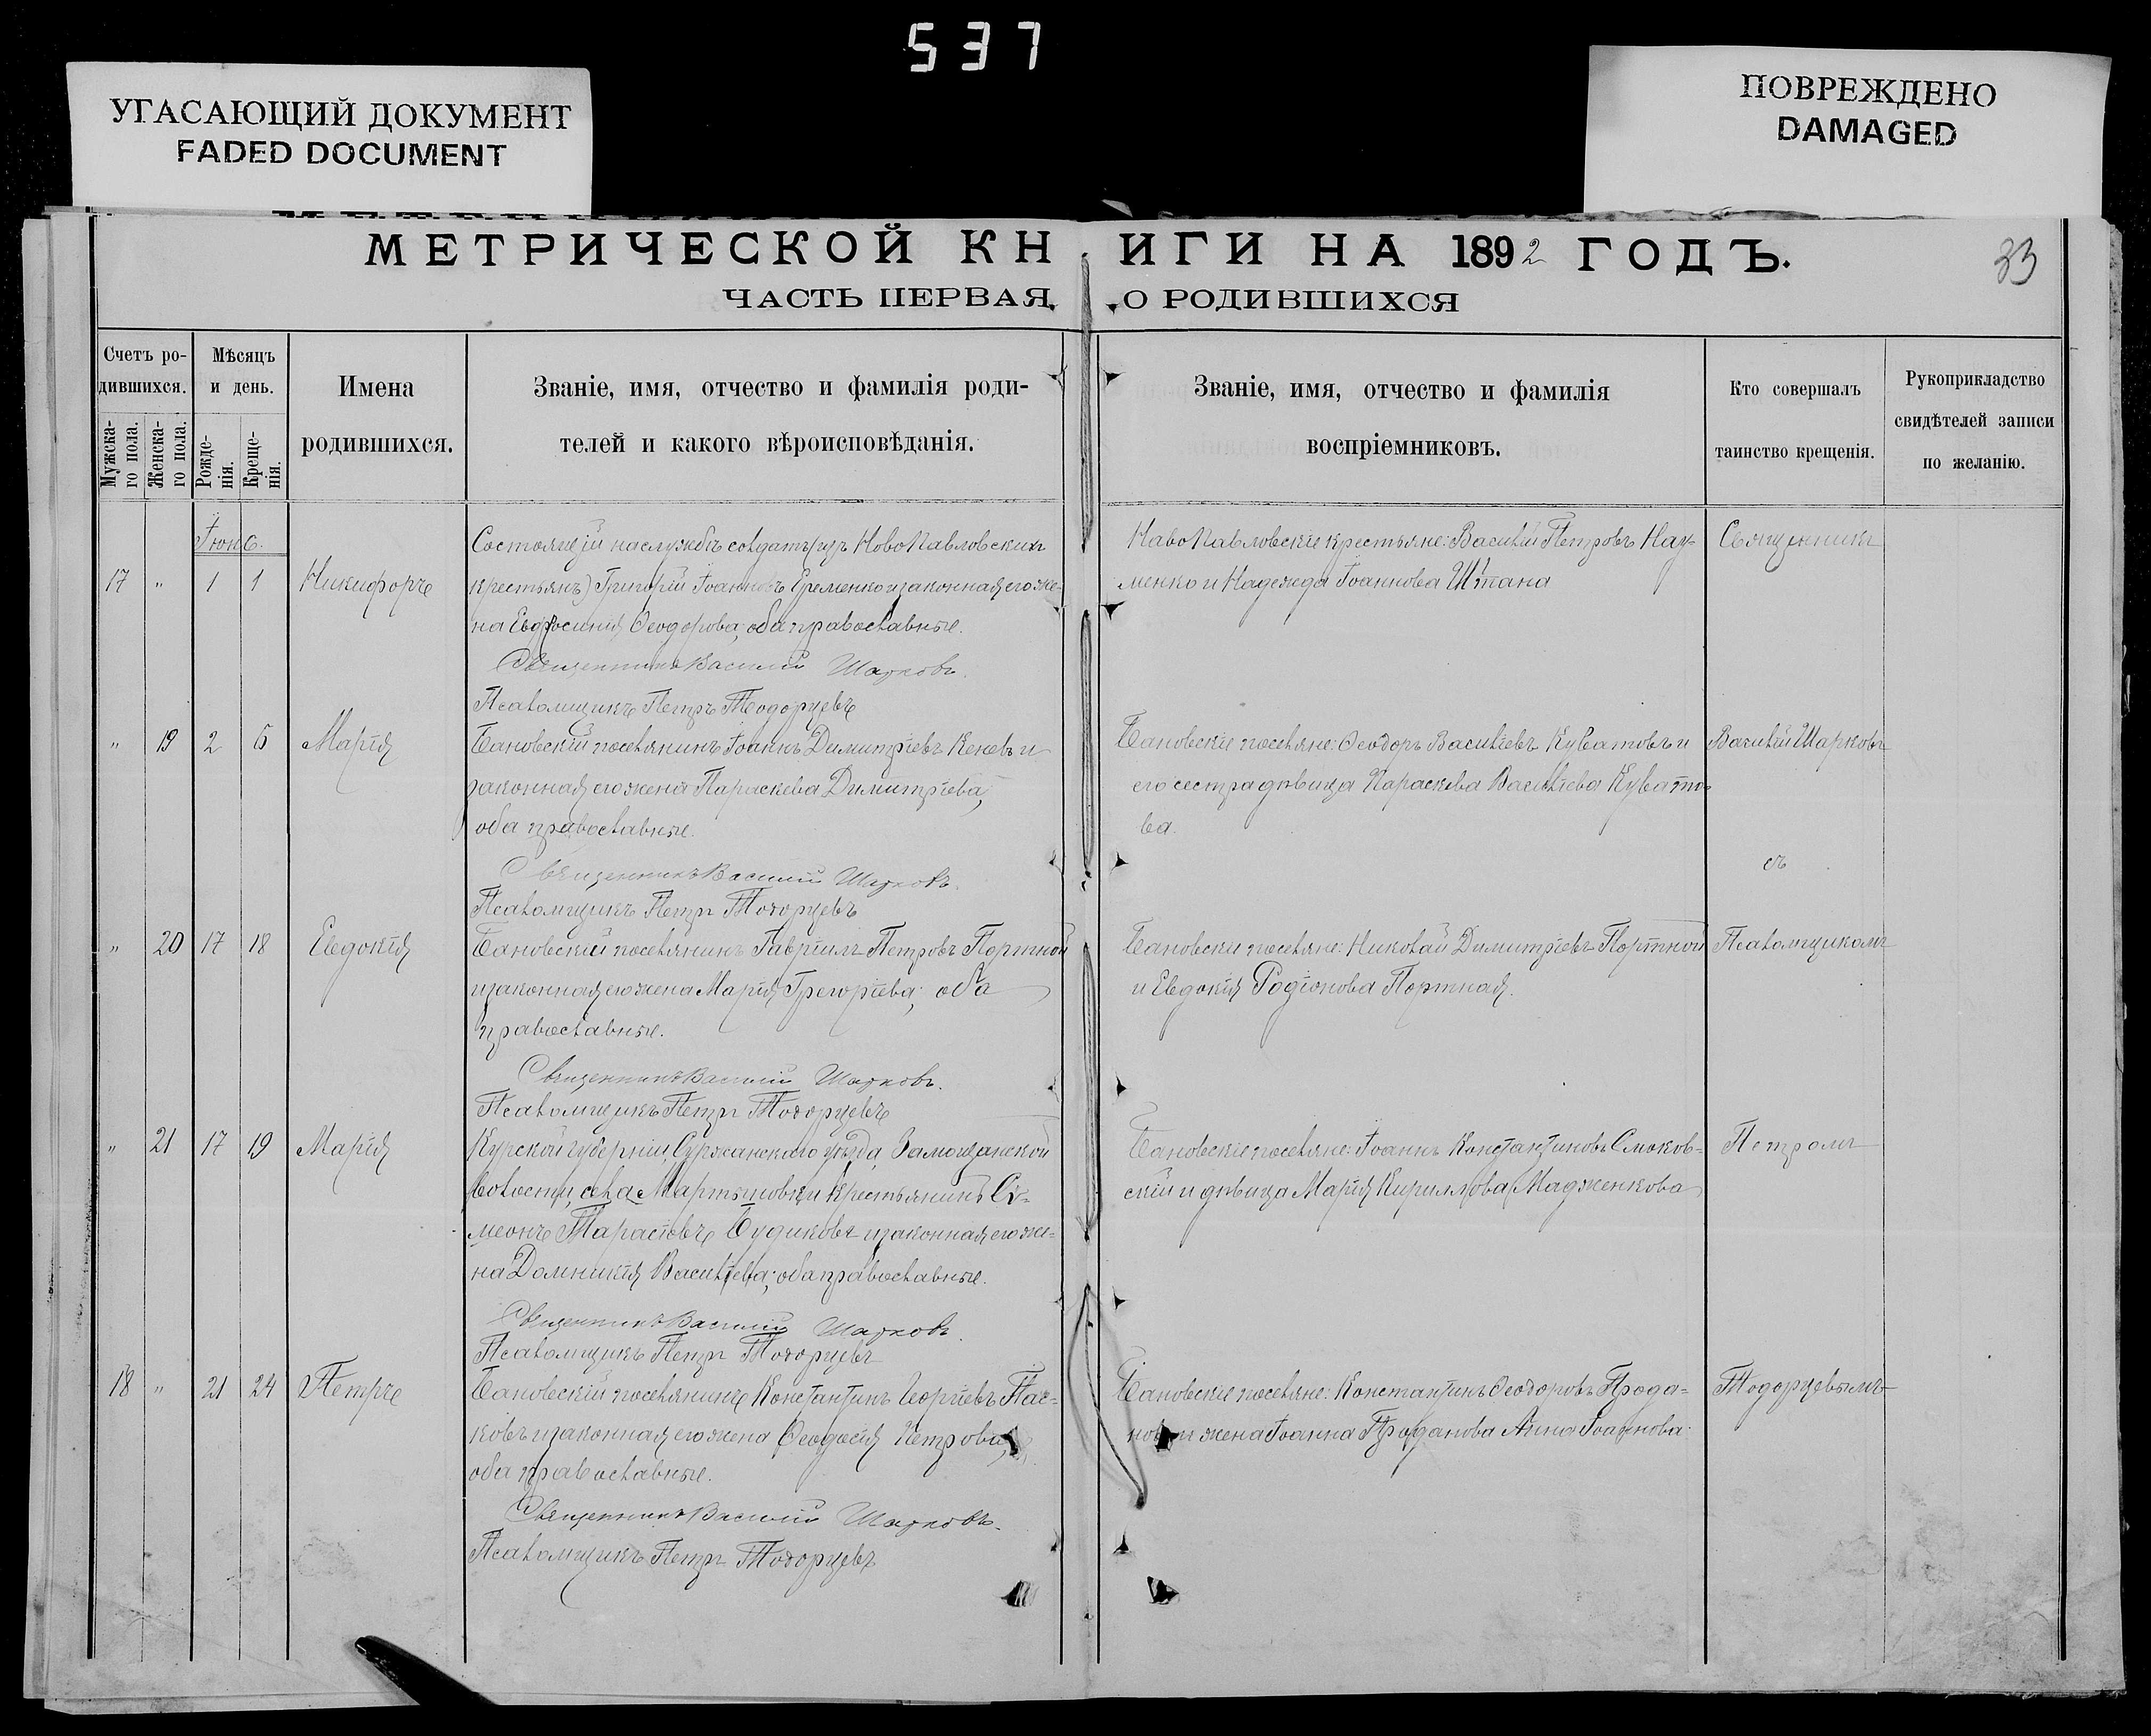 537
УГАСАЮЩИЙ ДОКУМЕНТ
FADED DOCUMENT
ПОВРЕЖДЕНО
DAMAGED
МЕТРИЧЕСКОЙ КНИГИ НА 1892 ГОДЪ.
33
ЧАСТЬ ПЕРВАЯ, О РОДИВШИХСЯ
Счетъ ро-
дившихся.
Мужска-
го пола.
Женска-
го пола.
Мѣсяцъ
и день.
Рожде-
нія.
Креще-
нія.
Имена
родившихся.
Званіе, имя, отчество и фамилія роди-
телей и какого вѣроисповѣданія.
Званіе, имя, отчество и фамилія
воспріемниковъ.
Кто совершалъ
таинство крещенія.
Рукоприкладство
свидѣтелей записи
по желанію.
Іюнь
17 " 1 1 Никифоръ
Состоящій на службѣ солдатъ (изъ НовоПавловскихъ
крестьянъ) Григорій Іоанновъ Еременко и законная его же-
на Евфросинія Ѳеодорова; оба православные.
Священникъ Василий Шарковъ.
Псаломщикъ Петръ Тодорцевъ
НовоПавловскіе крестьяне: Василій Петровъ Нау-
менко и Надежда Іоаннова Штана
Священникъ
" 19 2 5 Марія
Бановскій поселянинъ Іоаннъ Димитріевъ Кеневъ и
законная его жена Параскева Димитріева,
оба православные.
Священникъ Василий Шарковъ.
Псаломщикъ Петръ Тодорцевъ
Бановскіе поселяне: Ѳеодоръ Василіевъ Куватовъ и
его сестра дѣвица Параскева Василіева Кувато-
ва.
Василій Шарковъ
съ
" 20 17 18 Евдокія
Бановскій поселянинъ Гавріилъ Петровъ Портной
и законная его жена Марія Грегоріева; оба
православные.
Священникъ Василий Шарковъ.
Псаломщикъ Петръ Тодорцевъ
Бановскіе поселяне: Николай Димитріевъ Портной
и Евдокія Родіонова Портная.
Псаломщикомъ
" 21 17 19 Марія
Курской губерніи, Суржанскаго уѣзда, Замощанской
волости, села Мартыновки крестьянинъ Си-
меонъ Тарасіевъ Будиковъ и законная его же-
на Домникія Василіева; оба православные.
Священникъ Василий Шарковъ.
Псаломщикъ Петръ Тодорцевъ
Бановскіе поселяне: Іоаннъ Константиновъ Смоков-
скій и дѣвица Марія Кириллова Мадженкова
Петромъ
18 " 21 24 Петръ
Бановскій поселянинъ Константинъ Георгіевъ Пас-
ковъ и законная его жена Ѳеодосія Петрова,
оба православные.
Священникъ Василий Шарковъ.
Псаломщикъ Петръ Тодорцевъ
Бановскіе поселяне: Константинъ Ѳеодоровъ Прода-
новъ и жена Іоанна Проданова Анна Іоаннова.
Тодорцевымъ